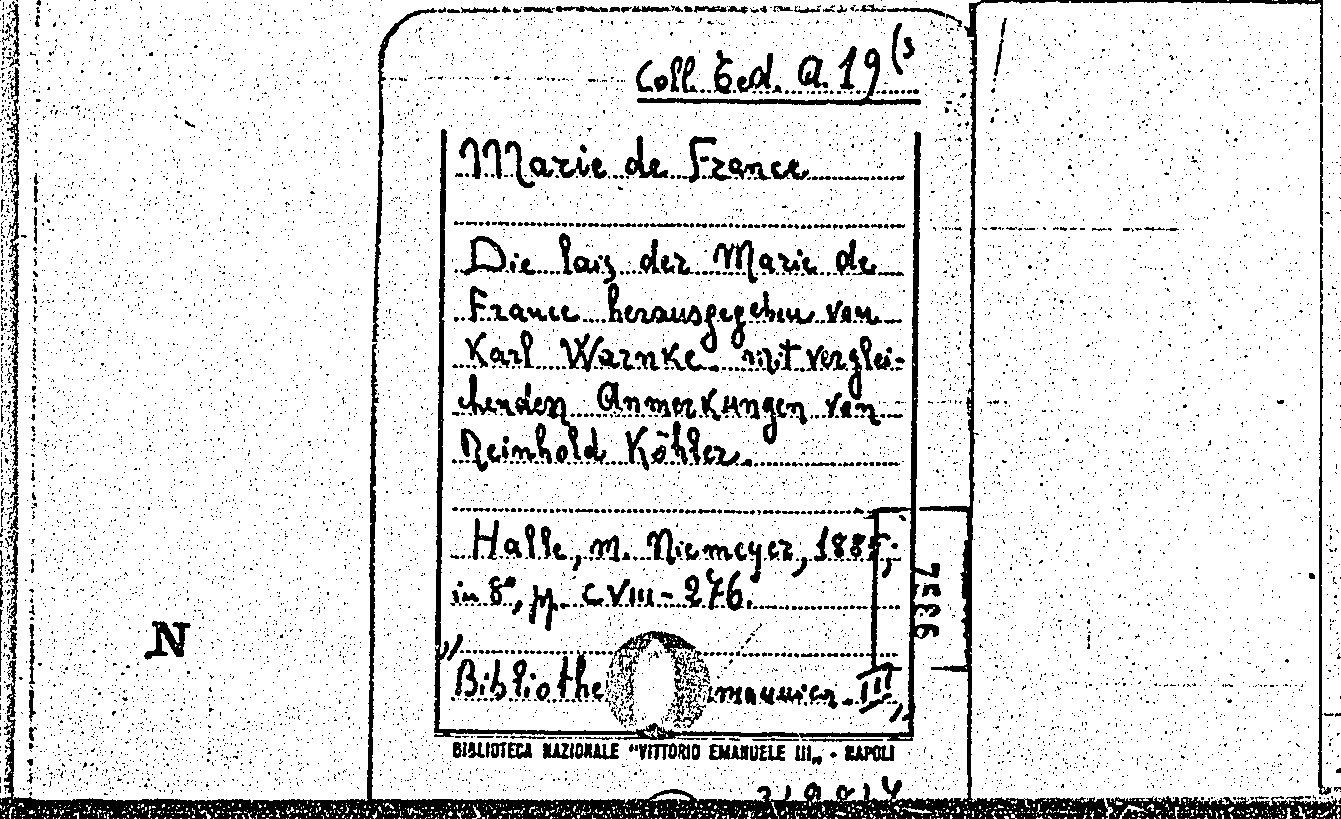 Coll. Ted. A. 19 (3
Marie de France
Die lais der Marie de
France herausgegeben von
Karl Warnke mit verglei-
chenden Anmerkungen von
Reinhold Köhler.
Halle, M. Niemeyer, 1885;
in 8°, pp. CVIII - 276.
"
Bibliothe mannica III
"
BIBLIOTECA NAZIONALE "VITTORIO EMANUELE III„ - NAPOLI
N